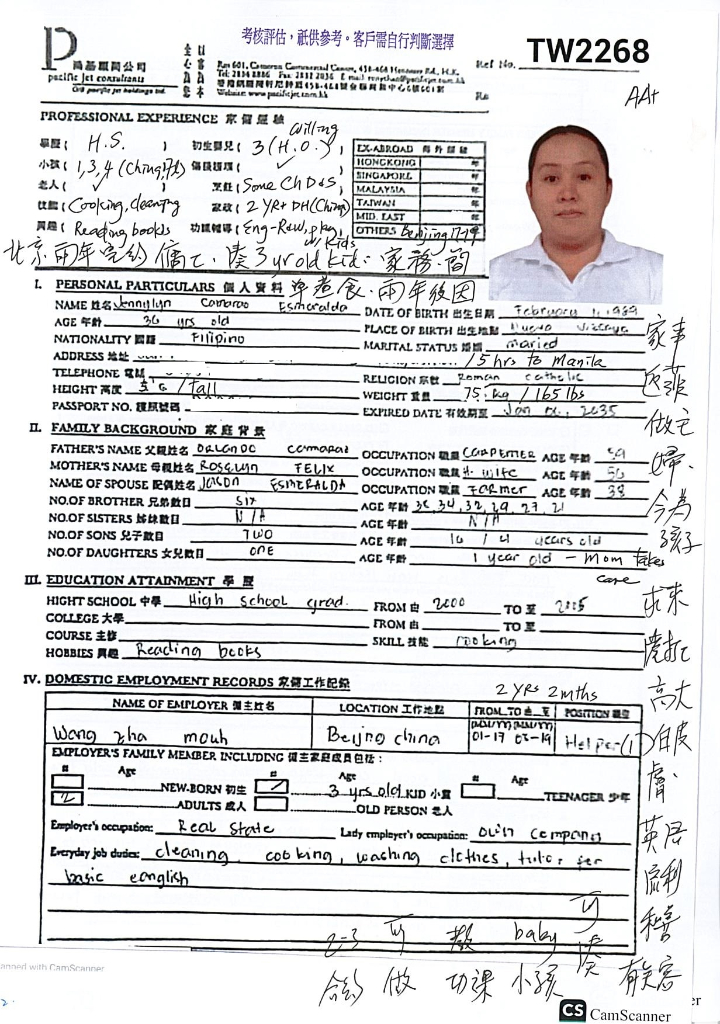 考核評估，祇供參考。客戶需自行判斷選擇
TW2268
尚品顧問公司
pacific jet consultants
Ref No.
AA+
Rm 601, Cameron Commercial Centre, 458-468 Hennessy Rd., H.K.
PROFESSIONAL EXPERIENCE 家傭經驗
學歷 ( H.S. ) 初生嬰兒 ( 3 (H.O.) ) willing
小孩 ( 1,3,4 (China, 17d)
老人 ( ✓ ) 烹飪 ( Some Ch D&S
Cooking, cleaning 家政 ( 2 YR+ DH (China)
興趣 ( Reading books 功課輔導 ( Eng-R&W, play w/ Kids
EX-ABROAD 海外經驗
HONGKONG 年
SINGAPORE 年
MALAYSIA 年
TAIWAN 年
MID. EAST 年
OTHERS Beijing 17-19
北京兩年完約 傭工、湊 3 yr old kid、家務、簡
單煮食、兩年後因
家事
返菲
做主
婦、
今為
孩子
求來
港打工
高大
白皮
膚、
英語
流利
I. PERSONAL PARTICULARS 個人資料
NAME 姓名 Jennylyn Camarao Esmeralda
DATE OF BIRTH 出生日期 February 1, 1989
AGE 年齡 36 yrs old
PLACE OF BIRTH 出生地點 Nueva Vizcaya
NATIONALITY 國籍 Filipino
MARITAL STATUS 婚姻 maried
ADDRESS 地址 15 hrs to Manila
TELEPHONE 電話
RELIGION 宗教 Roman catholic
HEIGHT 高度 / tall
WEIGHT 重量 75. kg / 165 lbs
PASSPORT NO. 護照號碼
EXPIRED DATE 有效期至 Jan 2035
II. FAMILY BACKGROUND 家庭背景
FATHER'S NAME 父親姓名 ORLANDO Camarao OCCUPATION 職業 CARPENTER AGE 年齡 59
MOTHER'S NAME 母親姓名 ROSELYN FELIX OCCUPATION 職業 H. wife AGE 年齡 56
NAME OF SPOUSE 配偶姓名 JAYSON ESMERALDA OCCUPATION 職業 FARMER AGE 年齡 38
NO.OF BROTHER 兄弟數目 SIX AGE 年齡 34, 32, 29, 27, 21
NO.OF SISTERS 姊妹數目 N/A AGE 年齡 N/A
NO.OF SONS 兒子數目 TWO AGE 年齡 years old
NO.OF DAUGHTERS 女兒數目 ONE AGE 年齡 1 year old - Mom takes care
III. EDUCATION ATTAINMENT 學歷
HIGHT SCHOOL 中學 High school grad. FROM 由 2000 TO 至 2005
COLLEGE 大學 FROM 由 TO 至
COURSE 主修 SKILL 技能 cooking
HOBBIES 興趣 Reading books
IV. DOMESTIC EMPLOYMENT RECORDS 家傭工作記錄
2 YRS 2 mths
NAME OF EMPLOYER 僱主姓名 LOCATION 工作地點 FROM 由 TO 至 POSITION 職位
(MM/YY) (MM/YY)
Wang zha mouh Beijng china 01-17 03-19 Helper (1)
EMPLOYER'S FAMILY MEMBER INCLUDING 僱主家庭成員包括：
# Age # Age # Age
NEW-BORN 初生 3 yrs old KID 小童 TEENAGER 少年
2 ADULTS 成人 OLD PERSON 老人
Employer's occupation: Real state Lady employer's occupation: company
Everyday job duties: cleaning, cooking, washing clothes, tutor for
basic eanglish
2-3 可 教 baby 可
合約 做 功課 小孩 湊
CS CamScanner